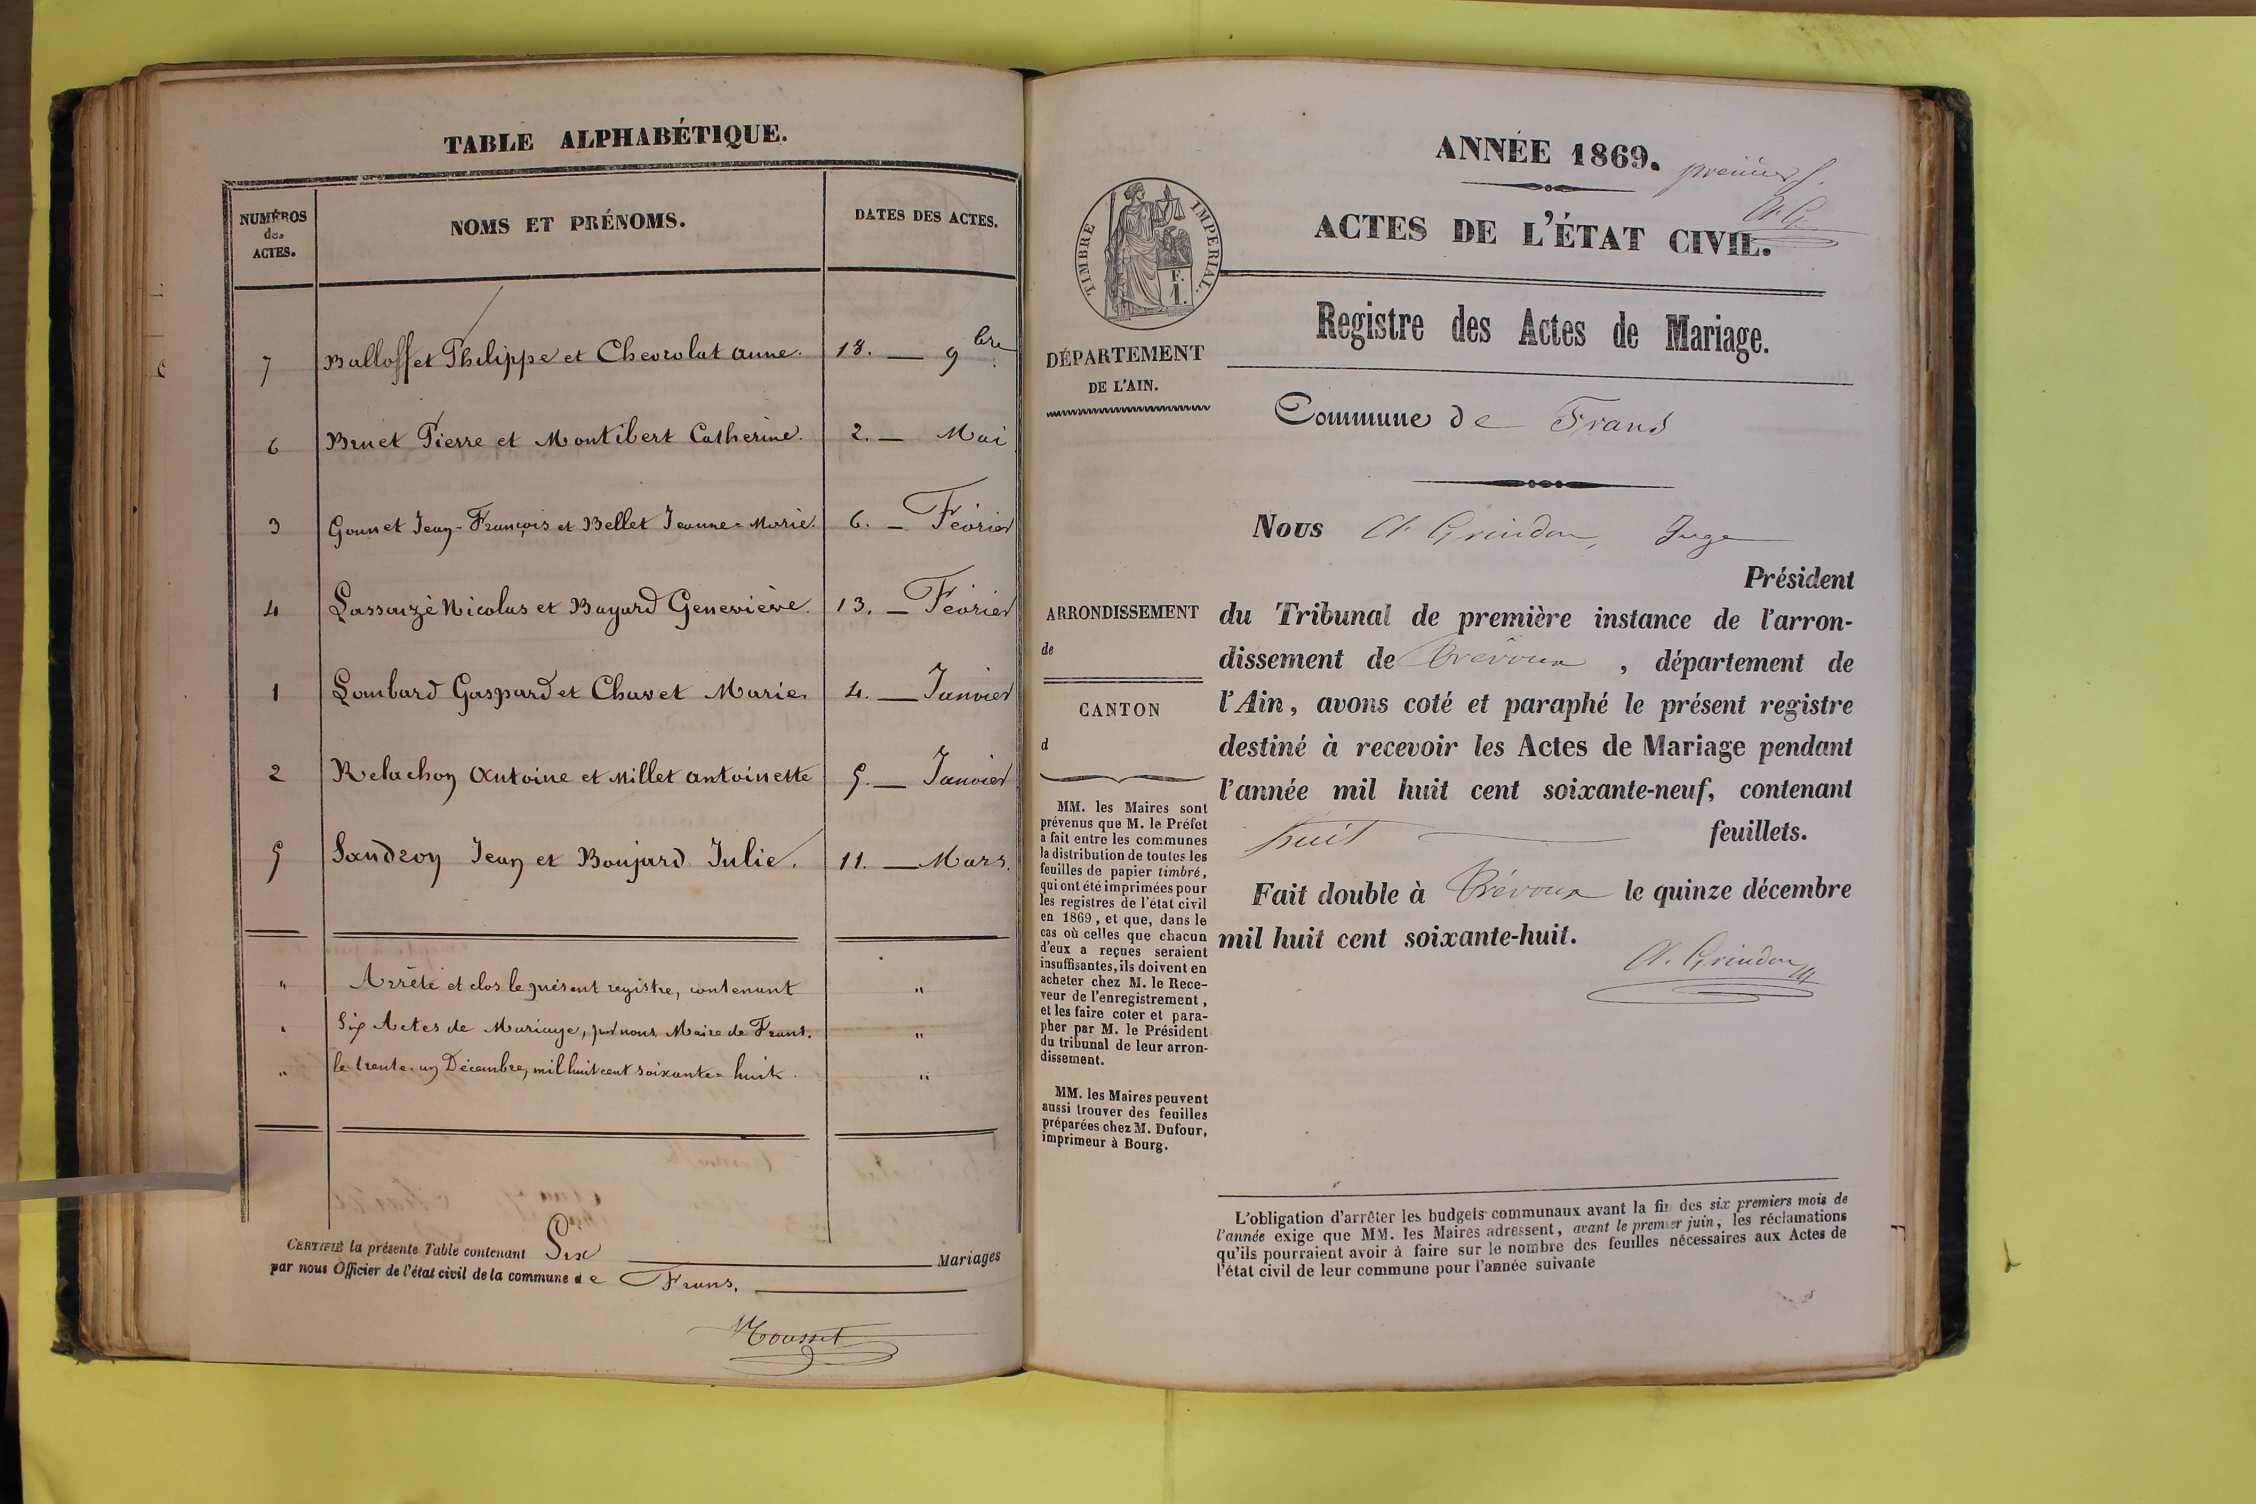 TABLE ALPHABÉTIQUE.
NUMÉROS
des
ACTES.
NOMS ET PRÉNOMS.
DATES DES ACTES.
7 Balloffet Philippe et Chevrolat anne. 18. — 9bre
6 Bruet Pierre et Montibert Catherine. 2. — Mai
3 Gounet Jean-François et Bellet Jeanne=Marie. 6. — Février
4 Lassauzé Nicolas et Bayard Geneviève. 13. — Février
1 Lombard Gaspard et Chavet Marie. 4. — Janvier
2 Relachon Antoine et Millet antoinette 5. — Janvier
5 Sandron Jean et Boujard Julie. 11. — Mars.
" Arrêté et clos le présent registre, contenant "
" Six Actes de Mariage, par nous Maire de Frans. "
" le trente-un Décembre, mil huit cent soixante=huit. "
CERTIFIÉ la présente Table contenant Six Mariages
par nous Officier de l'état civil de la commune de Frans.
Mousset
ANNÉE 1869.
premier f.
A. G.
ACTES DE L'ÉTAT CIVIL.
TIMBRE IMPERIAL.
F.
1.
Registre des Actes de Mariage.
DÉPARTEMENT
DE L'AIN.
Commune de Frans
Nous A. Grindon, Juge
Président
ARRONDISSEMENT
de
CANTON
d
du Tribunal de première instance de l'arron-
dissement de Trévoux, département de
l'Ain, avons coté et paraphé le présent registre
destiné à recevoir les Actes de Mariage pendant
l'année mil huit cent soixante-neuf, contenant
huit feuillets.
Fait double à Trévoux le quinze décembre
mil huit cent soixante-huit.
A. Grindon
MM. les Maires sont
prévenus que M. le Préfet
a fait entre les communes
la distribution de toutes les
feuilles de papier timbré,
qui ont été imprimées pour
les registres de l'état civil
en 1869, et que, dans le
cas où celles que chacun
d'eux a reçues seraient
insuffisantes, ils doivent en
acheter chez M. le Rece-
veur de l'enregistrement,
et les faire coter et para-
pher par M. le Président
du tribunal de leur arron-
dissement.
MM. les Maires peuvent
aussi trouver des feuilles
préparées chez M. Dufour,
imprimeur à Bourg.
L'obligation d'arrêter les budgets communaux avant la fin des six premiers mois de
l'année exige que MM. les Maires adressent, avant le premier juin, les réclamations
qu'ils pourraient avoir à faire sur le nombre des feuilles nécessaires aux Actes de
l'état civil de leur commune pour l'année suivante